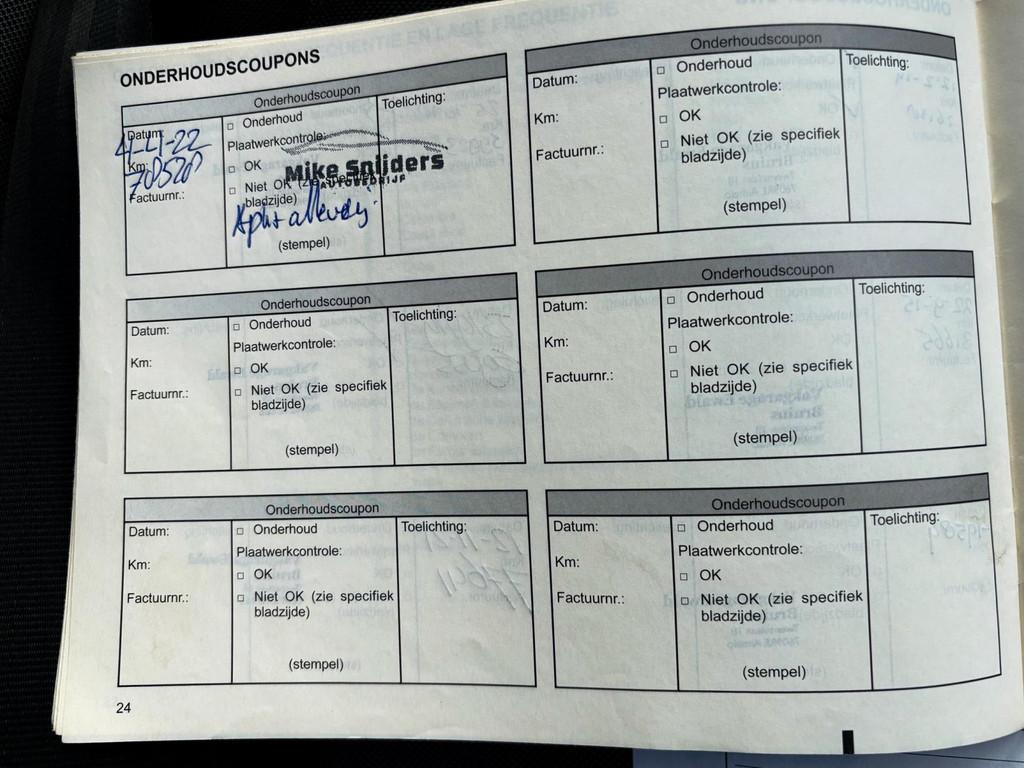 ONDERHOUDSCOUPONS
Onderhoudscoupon
Datum:
4-11-22
Km:
Factuurnr.:
Onderhoud
Plaatwerkcontrole:
OK
Niet OK (zie specifiek
bladzijde)
(stempel)
Toelichting:
Mike Snijders
AUTOBEDRIJF
Onderhoudscoupon
Datum:
Km:
Factuurnr.:
Onderhoud
Plaatwerkcontrole:
OK
Niet OK (zie specifiek
bladzijde)
(stempel)
Toelichting:
Onderhoudscoupon
Datum:
Km:
Factuurnr.:
Onderhoud
Plaatwerkcontrole:
OK
Niet OK (zie specifiek
bladzijde)
(stempel)
Toelichting:
Onderhoudscoupon
Datum:
Km:
Factuurnr.:
Onderhoud
Plaatwerkcontrole:
OK
Niet OK (zie specifiek
bladzijde)
(stempel)
Toelichting:
Onderhoudscoupon
Datum:
Km:
Factuurnr.:
Onderhoud
Plaatwerkcontrole:
OK
Niet OK (zie specifiek
bladzijde)
(stempel)
Toelichting:
Onderhoudscoupon
Datum:
Km:
Factuurnr.:
Onderhoud
Plaatwerkcontrole:
OK
Niet OK (zie specifiek
bladzijde)
(stempel)
Toelichting:
24